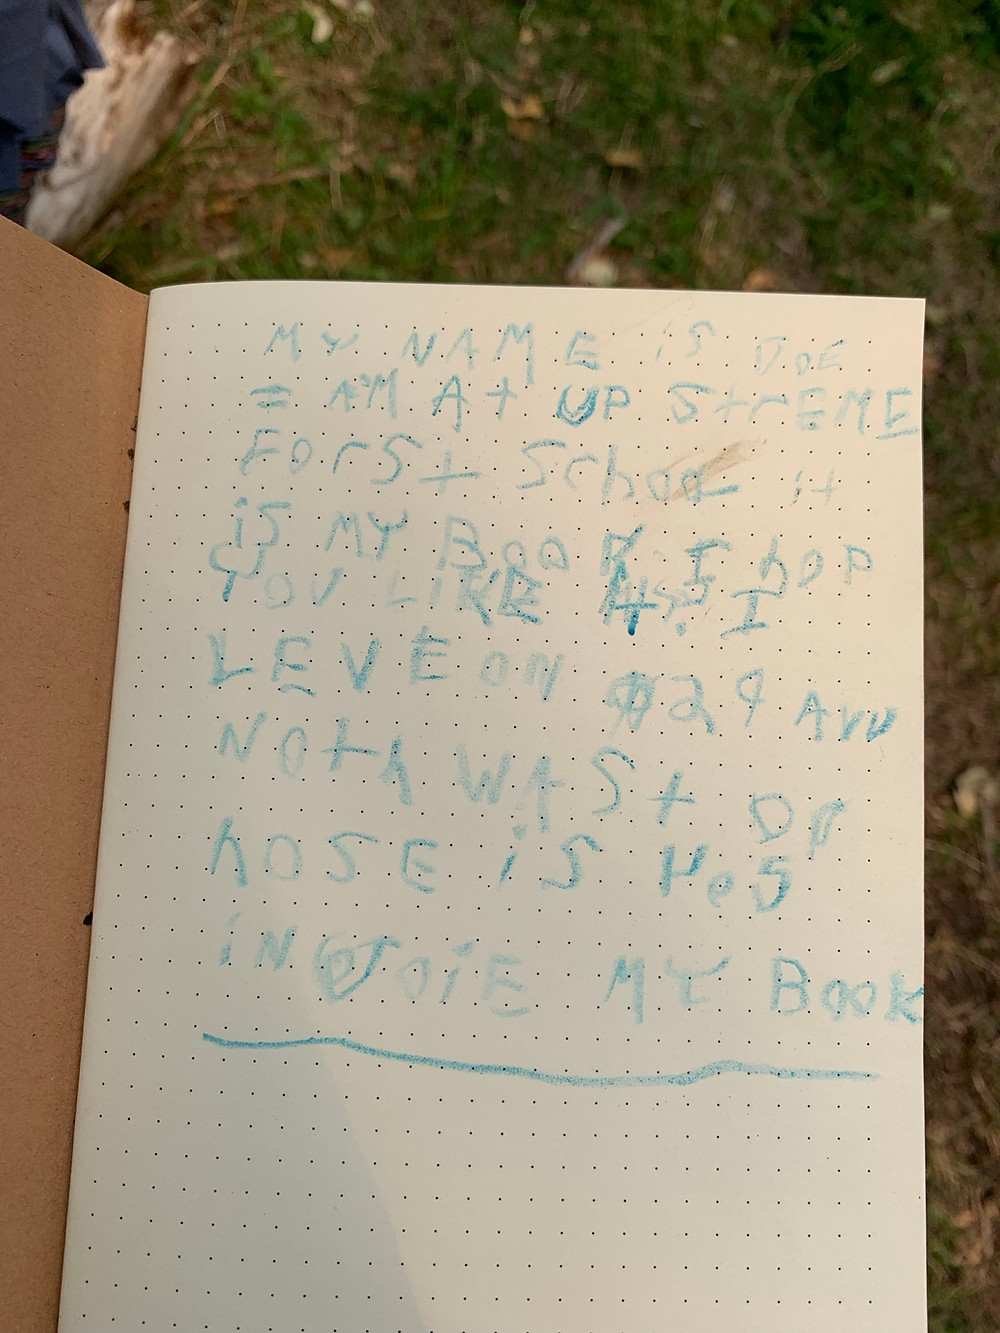 MY NAME iS DOE
I AM At UP StrEME
FOrSt School it
iS MY BOOK I hOP
YOU LiKE it. I
LEVE ON 124 AVU
NOth WASt
hOSE iS
iNJOiE MY BOOK